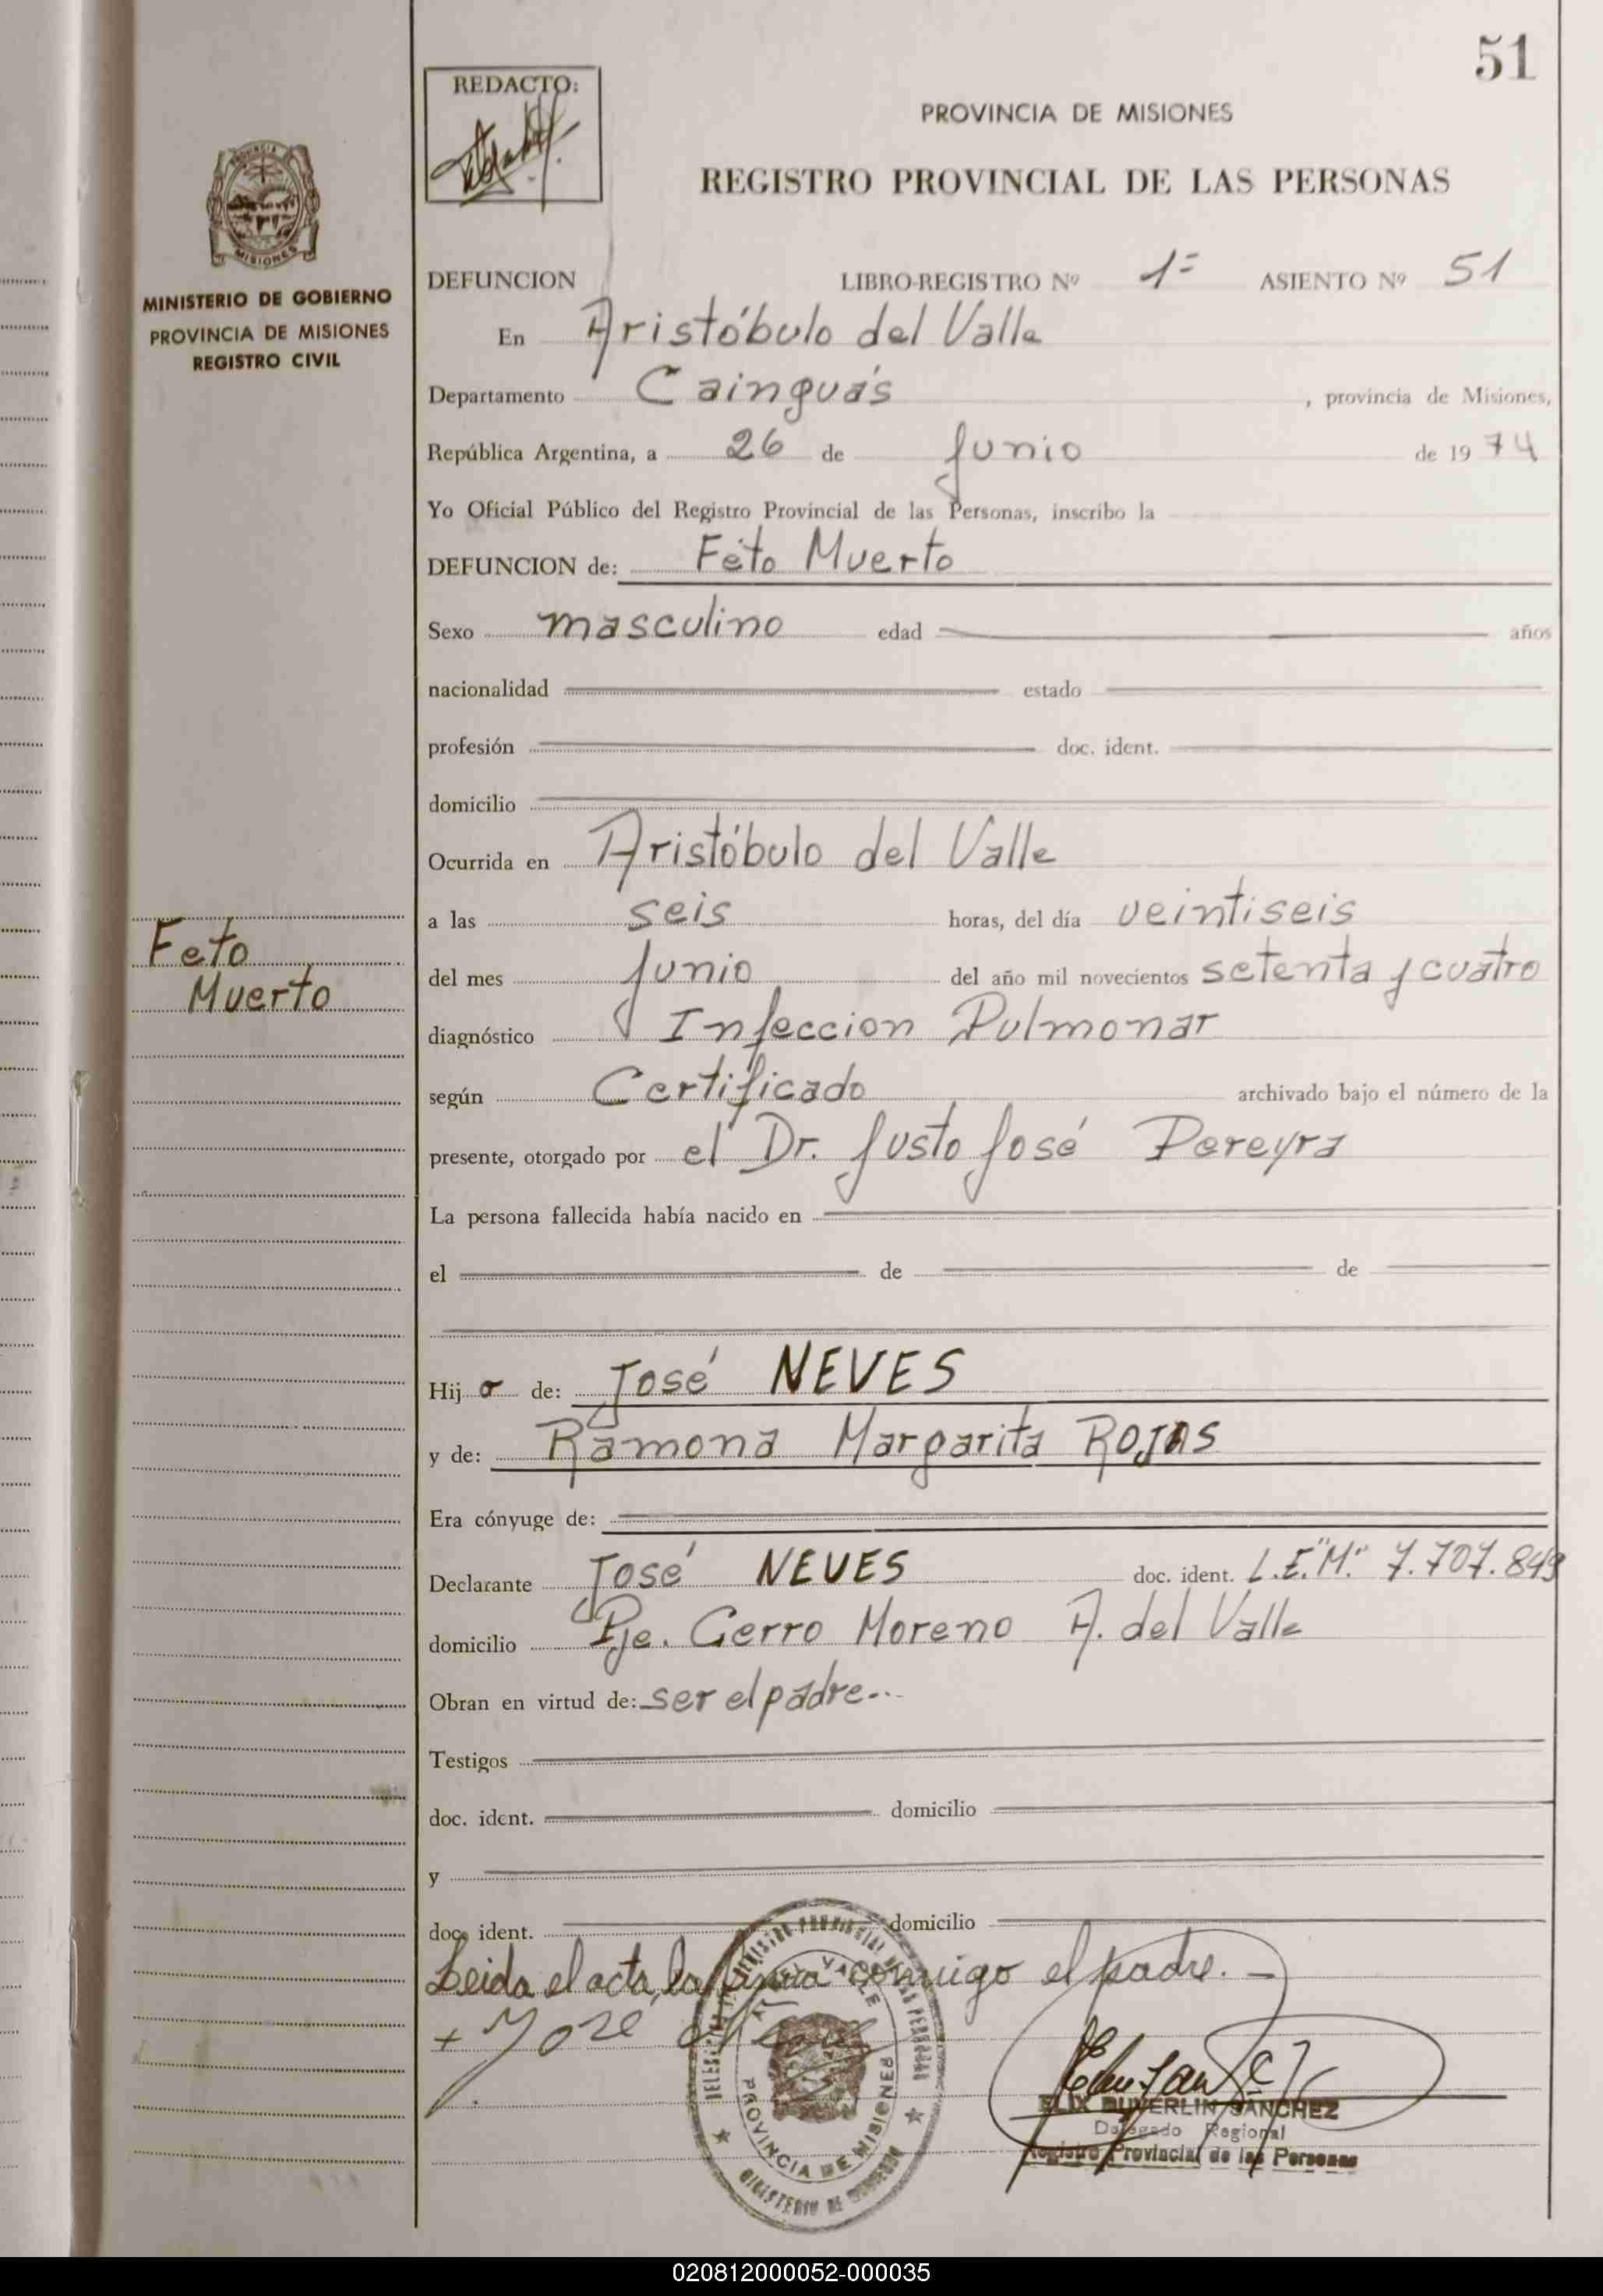 51
REDACTO:
PROVINCIA DE MISIONES
REGISTRO PROVINCIAL DE LAS PERSONAS
MISIONES
MINISTERIO DE GOBIERNO
PROVINCIA DE MISIONES
REGISTRO CIVIL
DEFUNCION LIBRO-REGISTRO Nº 1º ASIENTO Nº 51
En Aristóbulo del Valle
Departamento Cainguás, provincia de Misiones,
República Argentina, a 26 de Junio de 1974
Yo Oficial Público del Registro Provincial de las Personas, inscribo la
DEFUNCION de: Feto Muerto
Sexo masculino edad años
nacionalidad estado
profesión doc. ident.
domicilio
Ocurrida en Aristóbulo del Valle
a las seis horas, del día veintiseis
Feto
Muerto
del mes Junio del año mil novecientos setenta y cuatro
diagnóstico Infeccion Pulmonar
según Certificado archivado bajo el número de la
presente, otorgado por el Dr. Justo José Pereyra
La persona fallecida había nacido en
el de de
Hijo de: José NEVES
y de: Ramona Margarita ROJAS
Era cónyuge de:
Declarante José NEVES doc. ident. L.E."M." 7.707.849
domicilio Pje. Cerro Moreno A. del Valle
Obran en virtud de: ser el padre...
Testigos
doc. ident. domicilio
y
doc. ident. domicilio
Leida el acta, la firma conmigo el padre. -
+ José
PROVINCIA DE MISIONES
ELIX DUVERLIN SANCHEZ
Delegado Regional
Registro Provincial de las Personas
020812000052-000035